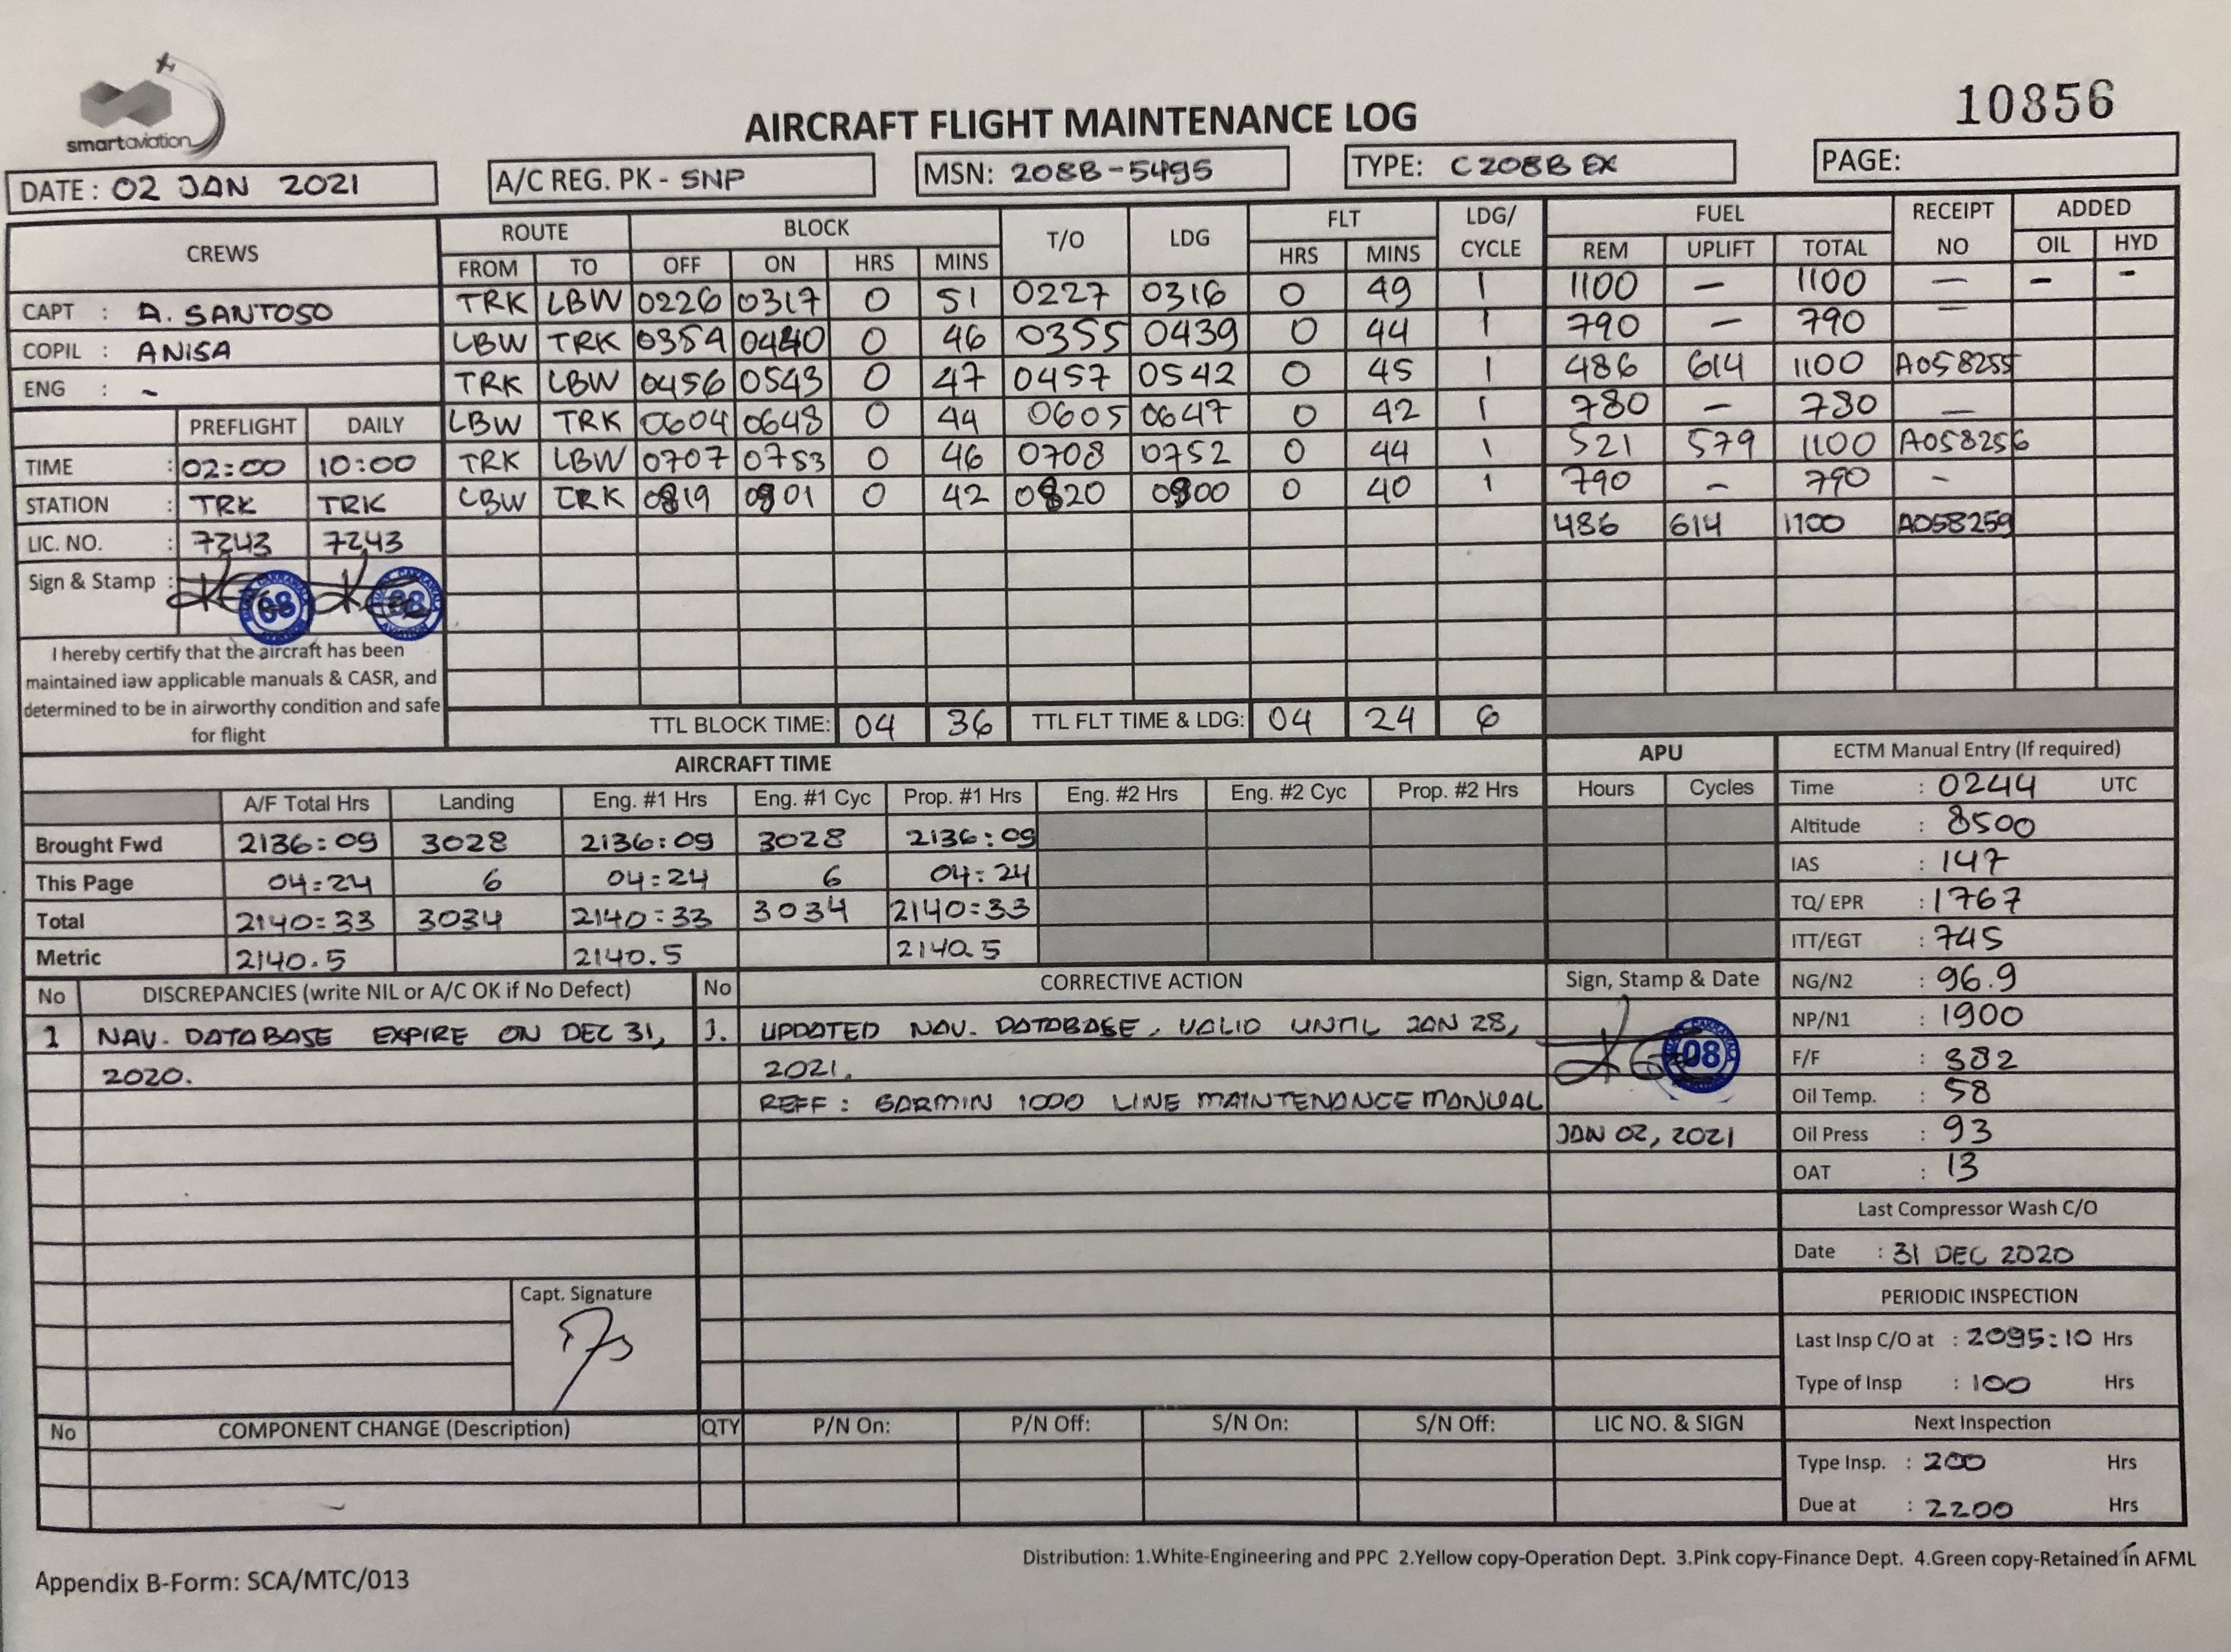 smartaviation
AIRCRAFT FLIGHT MAINTENANCE LOG
10856
DATE : 02 JAN 2021
A/C REG. PK - SNP
MSN: 208B-5495
TYPE: C208B EX
PAGE:
CREWS
CAPT : A. SANTOSO
COPIL : ANISA
ENG : -
PREFLIGHT DAILY
TIME : 02:00 10:00
STATION : TRK TRK
LIC. NO. : 7243 7243
Sign & Stamp :
08 08
I hereby certify that the aircraft has been
maintained iaw applicable manuals & CASR, and
determined to be in airworthy condition and safe
for flight
ROUTE BLOCK T/O LDG FLT LDG/ FUEL RECEIPT ADDED
FROM TO OFF ON HRS MINS HRS MINS CYCLE REM UPLIFT TOTAL NO OIL HYD
TRK LBW 0226 0317 0 51 0227 0316 0 49 1 1100 - 1100 - - -
LBW TRK 0354 0440 0 46 0355 0439 0 44 1 790 - 790 -
TRK LBW 0456 0543 0 47 0457 0542 0 45 1 486 614 1100 A058255
LBW TRK 0604 0648 0 44 0605 0647 0 42 1 780 - 780 -
TRK LBW 0707 0753 0 46 0708 0752 0 44 1 521 579 1100 A058256
LBW TRK 0819 0901 0 42 0820 0900 0 40 1 790 - 790 -
486 614 1100 A058259
TTL BLOCK TIME: 04 36 TTL FLT TIME & LDG: 04 24 6
AIRCRAFT TIME
A/F Total Hrs Landing Eng. #1 Hrs Eng. #1 Cyc Prop. #1 Hrs Eng. #2 Hrs Eng. #2 Cyc Prop. #2 Hrs
Brought Fwd 2136:09 3028 2136:09 3028 2136:09
This Page 04:24 6 04:24 6 04:24
Total 2140:33 3034 2140:33 3034 2140:33
Metric 2140.5 2140.5 2140.5
APU
Hours Cycles
ECTM Manual Entry (If required)
Time : 0244 UTC
Altitude : 8500
IAS : 147
TQ/ EPR : 1767
ITT/EGT : 745
NG/N2 : 96.9
NP/N1 : 1900
F/F : 382
Oil Temp. : 58
Oil Press : 93
OAT : 13
Last Compressor Wash C/O
Date : 31 DEC 2020
PERIODIC INSPECTION
Last Insp C/O at : 2095:10 Hrs
Type of Insp : 100 Hrs
Next Inspection
Type Insp. : 200 Hrs
Due at : 2200 Hrs
No DISCREPANCIES (write NIL or A/C OK if No Defect)
1 NAV. DATABASE EXPIRE ON DEC 31,
2020.
Capt. Signature
No CORRECTIVE ACTION
1. UPDATED NAV. DATABASE, VALID UNTIL JAN 28,
2021.
REFF : GARMIN 1000 LINE MAINTENANCE MANUAL
Sign, Stamp & Date
08
JAN 02, 2021
No COMPONENT CHANGE (Description) QTY P/N On: P/N Off: S/N On: S/N Off: LIC NO. & SIGN
Distribution: 1.White-Engineering and PPC 2.Yellow copy-Operation Dept. 3.Pink copy-Finance Dept. 4.Green copy-Retained in AFML
Appendix B-Form: SCA/MTC/013